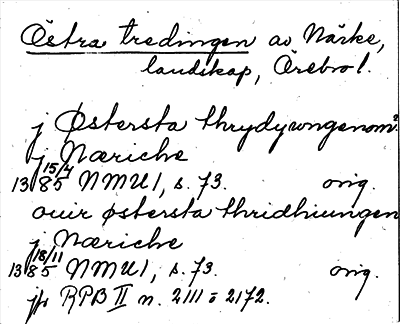 Östra tredingen av Närke,
landskap, Örebro l.
j Østersta thrydyongenom
j Næriche
13 15/4 85 NMU I, s. 73. orig.
ouir østersta thridhiungen
j Næriche
13 18/11 85 NMU I, s. 73. orig.
jfr RPB II n. 2111 o 2172.